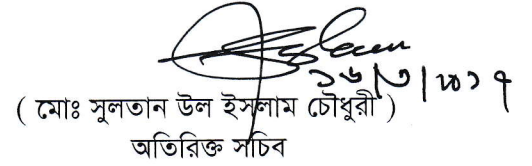 ১৬/৩/২০১৭
( মোঃ সুলতান উল ইসলাম চৌধুরী )
অতিরিক্ত সচিব